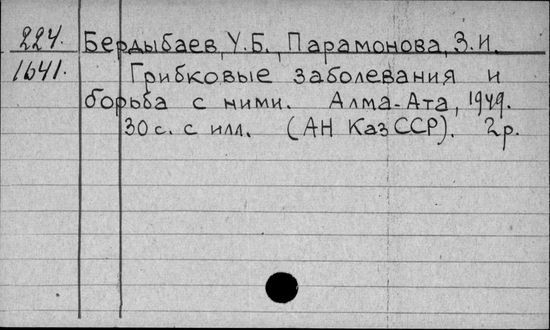 224. Бердыбаев, У.Б., Парамонова, З.И.
1641. Грибковые заболевания и
борьба с ними. Алма-Ата, 1949.
30 с. с илл. (АН КазССР). 2р.